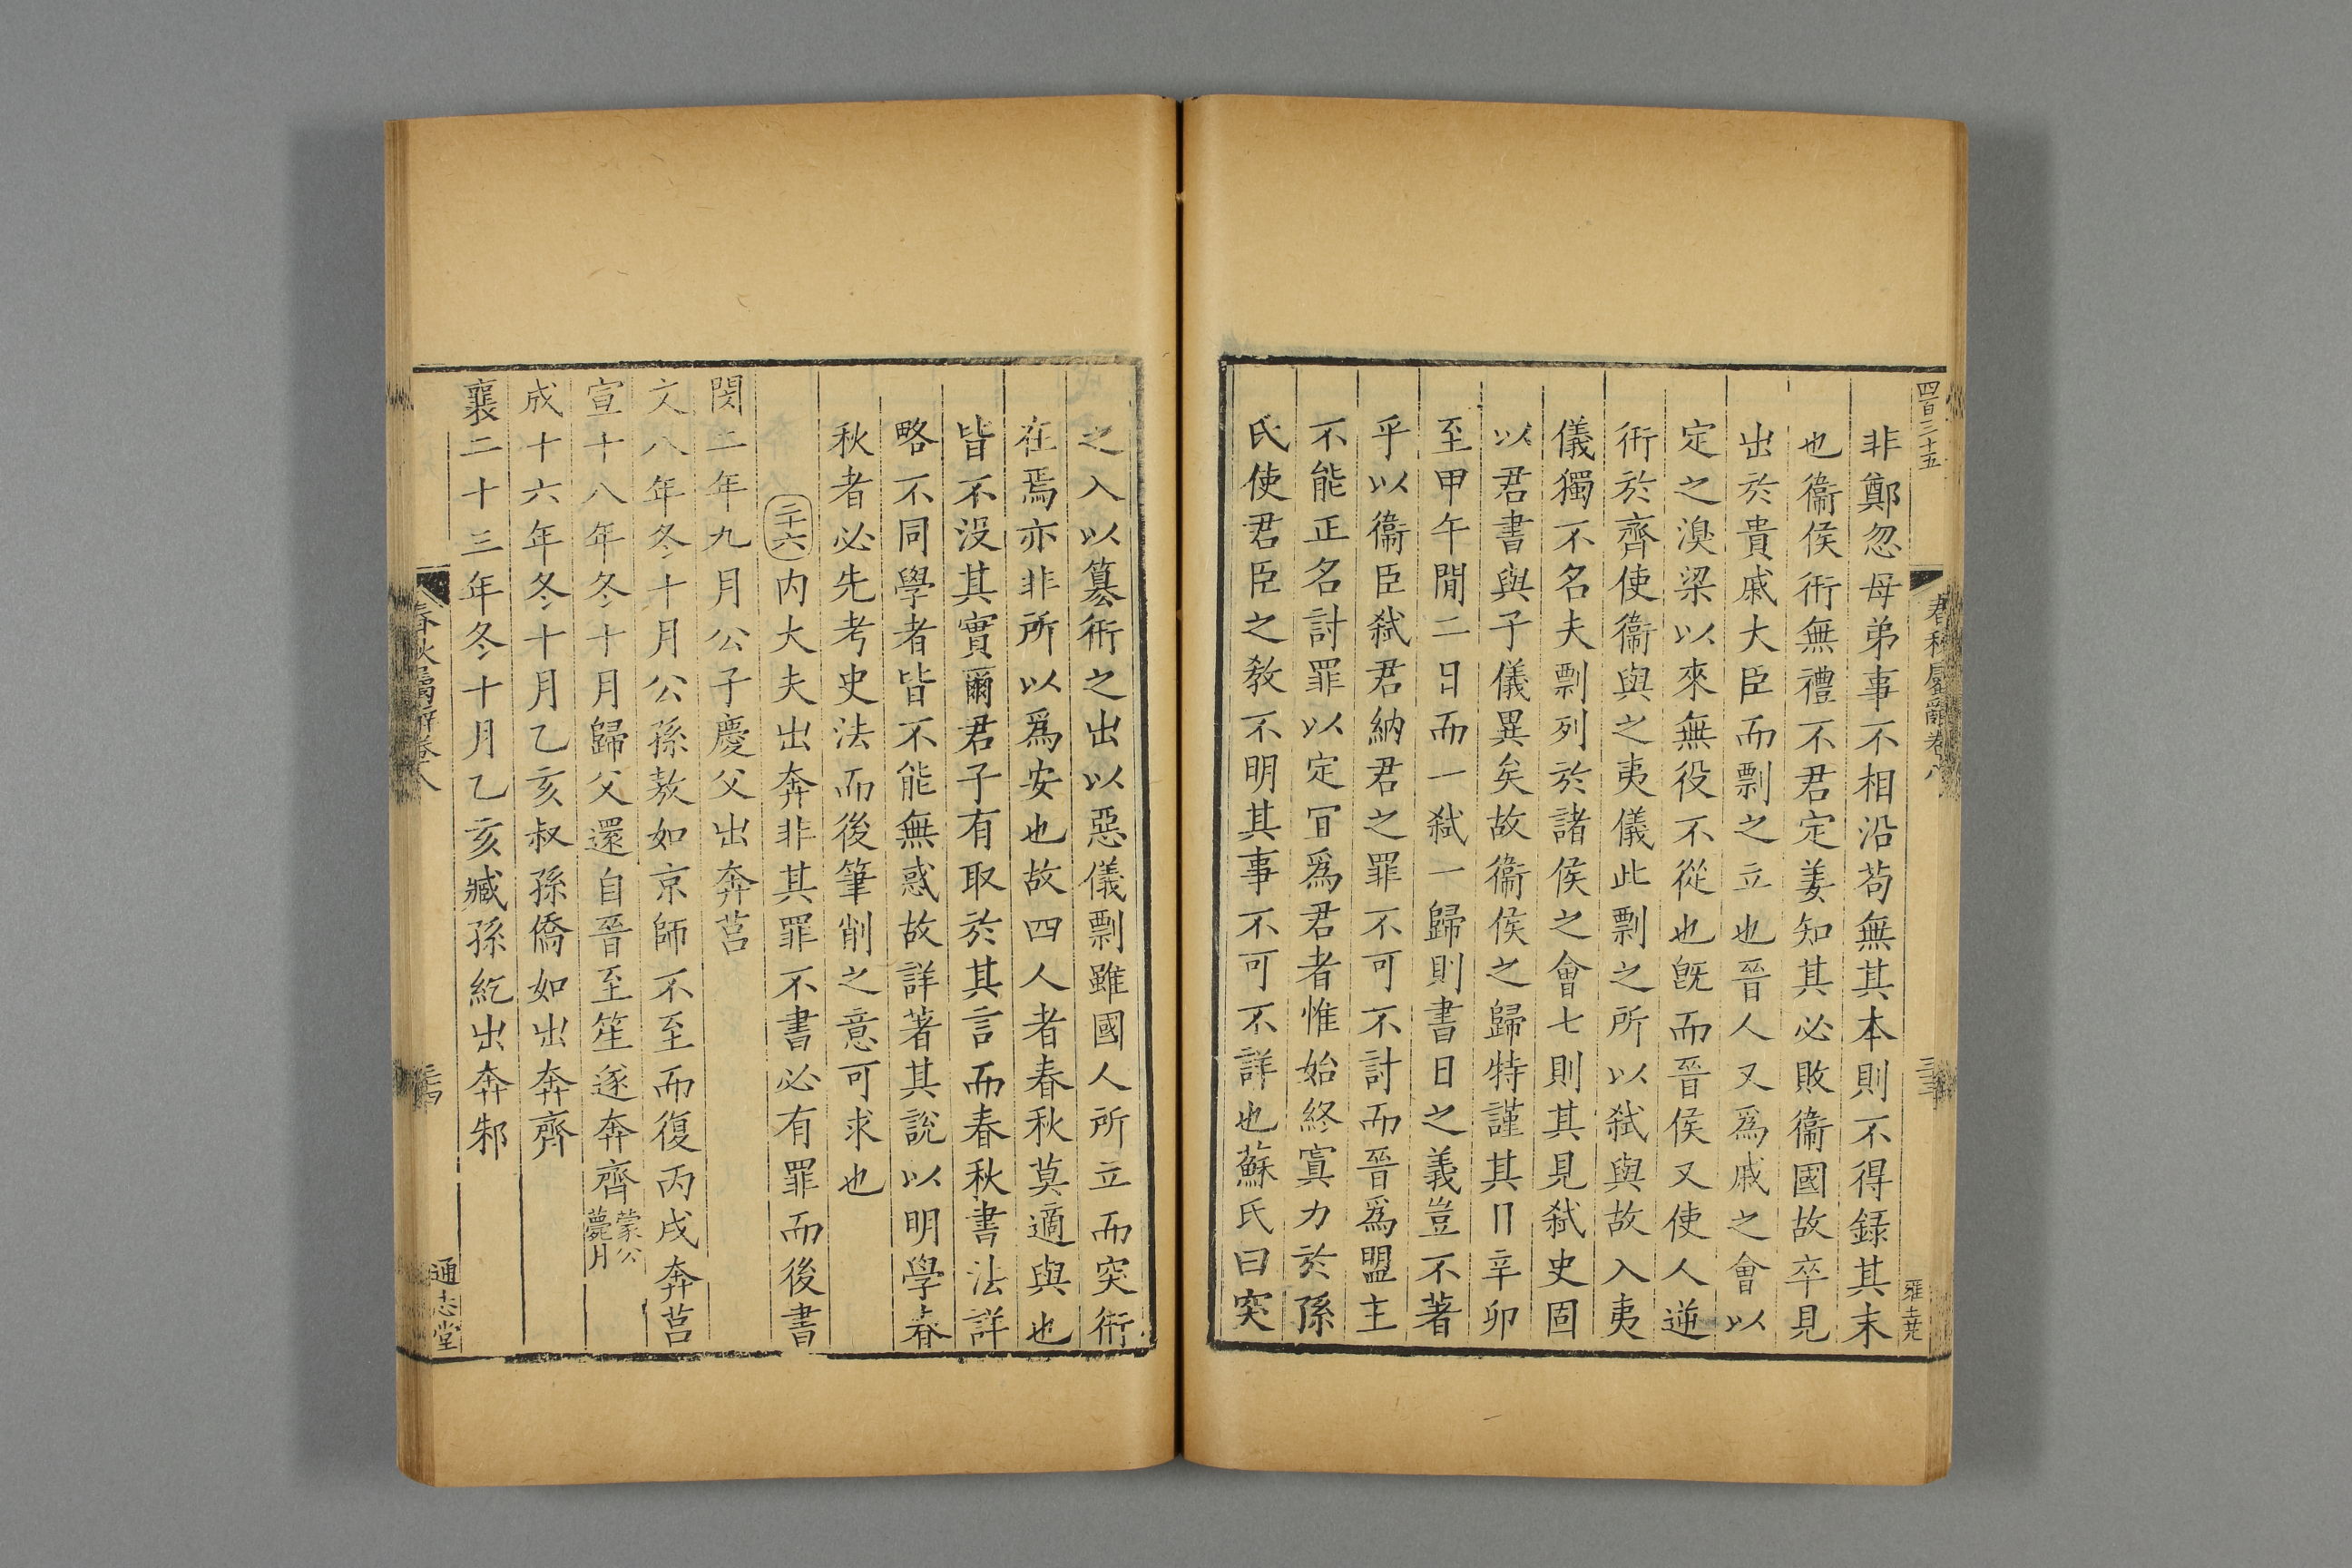 四百三十五
春秋屬辭卷八
非鄭忽母弟事不相沿苟無其本則不得録其末
也衞侯衎無禮不君定姜知其必敗衞國故卒見
出於貴戚大臣而剽之立也晉人又爲戚之會以
定之湨梁以來無役不從也旣而晉侯又使人逆
衎於齊使衞與之夷儀此剽之所以弑與故入夷
儀獨不名夫剽列於諸侯之會七則其見弑史固
以君書與子儀異矣故衞侯之歸特謹其日辛卯
至甲午閒二日而一弑一歸則書日之義豈不著
乎以衞臣弑君納君之罪不可不討而晉爲盟主
不能正名討罪以定冝爲君者惟始終寘力於孫
氏使君臣之教不明其事不可不詳也蘇氏曰突
之入以簒衎之出以惡儀剽雖國人所立而突衎
在焉亦非所以爲安也故四人者春秋莫適與也
皆不没其實爾君子有取於其言而春秋書法詳
略不同學者皆不能無惑故詳著其說以明學春
秋者必先考史法而後筆削之意可求也
二十六内大夫出奔非其罪不書必有罪而後書
閔二年九月公子慶父出奔莒
文八年冬十月公孫敖如京師不至而復丙戌奔莒
宣十八年冬十月歸父還自晉至笙遂奔齊蒙公
薨月
成十六年冬十月乙亥叔孫僑如出奔齊
襄二十三年冬十月乙亥臧孫紇出奔邾
春秋屬辭卷八
通志堂